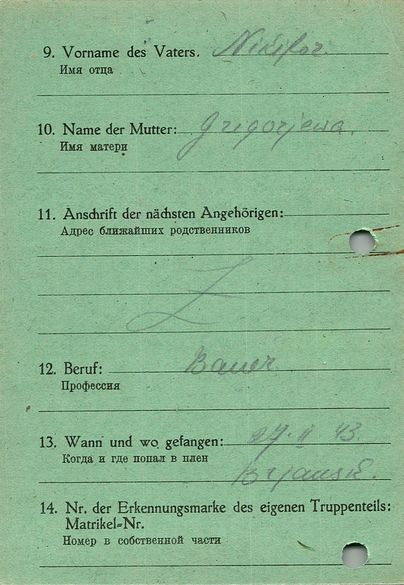 9. Vorname des Vaters. Nikifor.
Имя отца
10. Name der Mutter: Grigorjewa.
Имя матери
11. Anschrift der nächsten Angehörigen:
Адрес ближайших родственников
12. Beruf: Bauer
Профессия
13. Wann und wo gefangen: 27. II 43.
Когда и где попал в плен
Brjansk.
14. Nr. der Erkennungsmarke des eigenen Truppenteils:
Matrikel=Nr.
Номер в собственной части